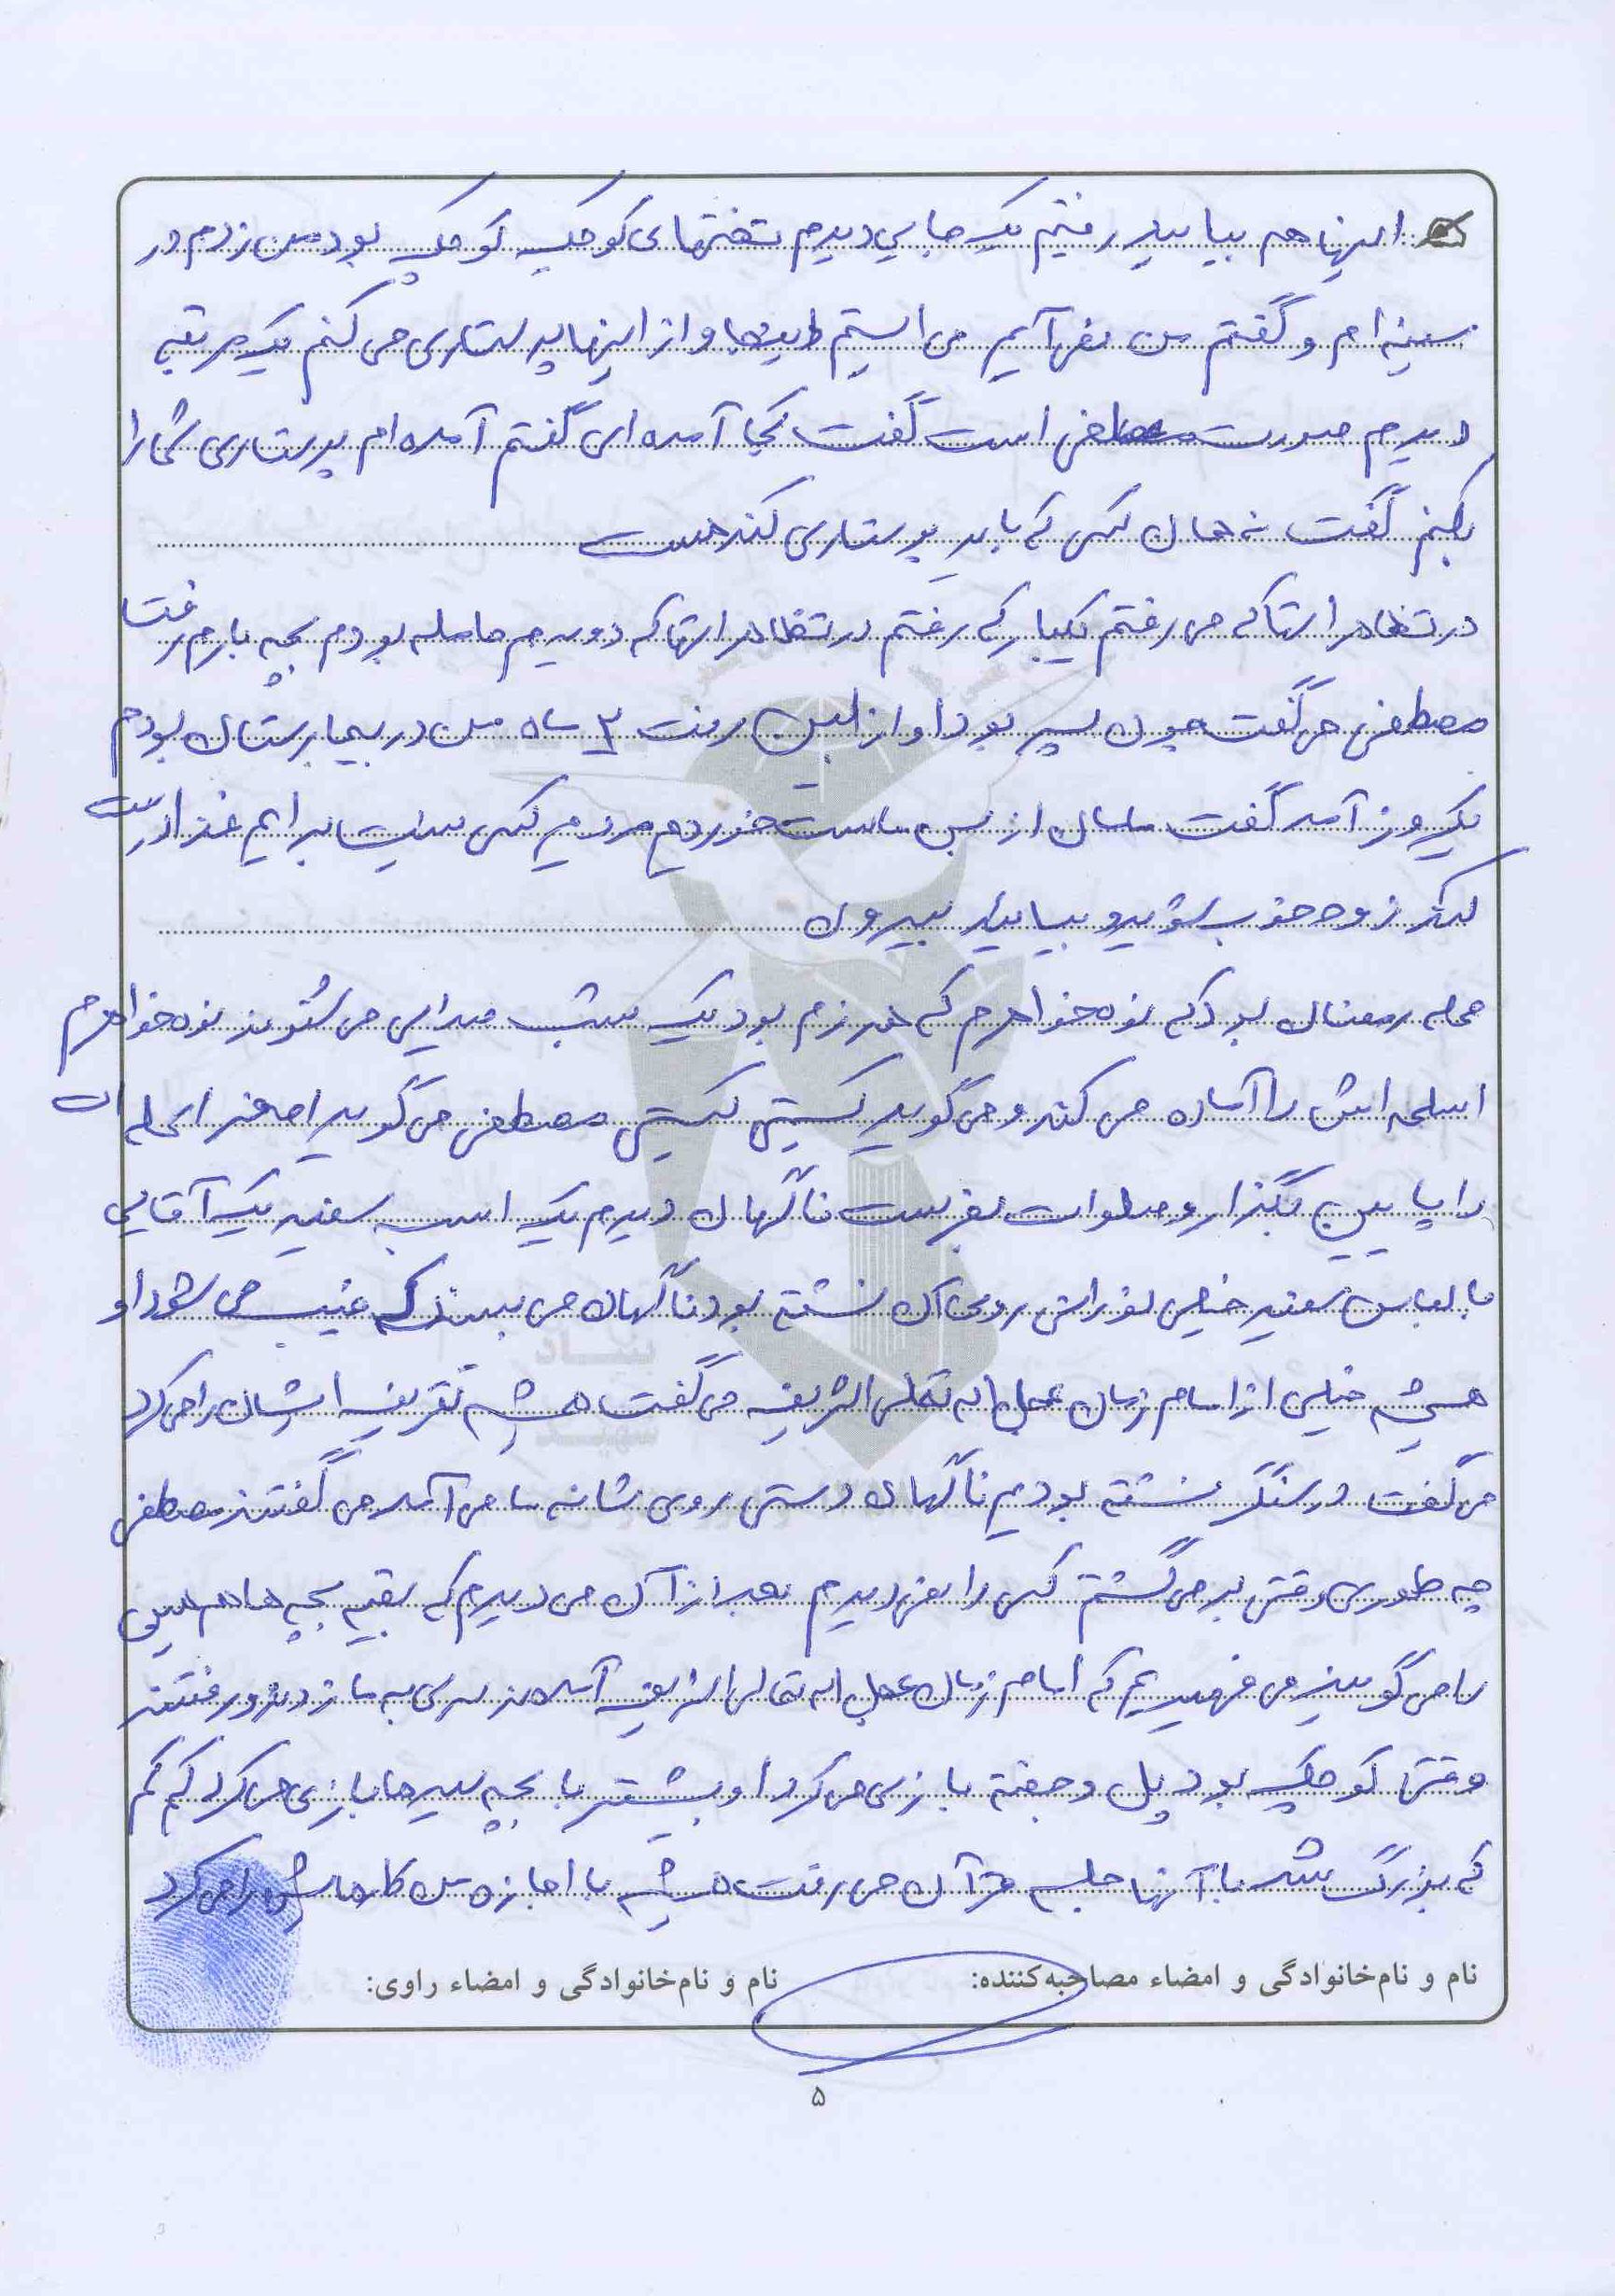 اینها هم بیایید رفتیم یک جایی دیدم تختهای کوچک کوچک بود من زدم در
سینه ام و گفتم من نفرآیم می ایستم طبیعها و از اینها پرستاری می کنم یک مرتبه
دیدم صورت مصطفی است گفت کجا آمده ای گفتم آمده ام پرستاری شما را
بکنم گفت نه همان کسی که باید پرستاری کند هست
در تظاهراتها که می رفتم یکبار که رفتم در تظاهراتها که دیدم حامله بودم بچه بارم رفت
مصطفی می گفت چون پسر بود او از بین رفت ۲ ماه من در بیمارستان بودم
یکروز آمد گفت مامان از بس ماست خوردم مردم کسی نیست برایم غذا درست
کند زود خوب شوید و بیایید بیرون
محله رمضان بود که نوه خواهرم که هم رزم بود یک شب صدایی می شنوند نوه خواهرم
اسلحه اش را آماده می کند و می گوید کیستی کیستی مصطفی می گوید اصغر اسلحه ات
را پایین بگذار و صلوات بفرست ناگهان دیدم یک اسب سفید یک آقایی
با لباس سفید خیلی نورانی روی آن نشته بود ناگهان می بینند که غیب می شود او
همیشه خیلی از امام زمان عجل اله تعالی الشریف می گفت همیشه تعریف ایشان را می کرد
می گفت در سنگر نشته بودیم ناگهان دستی روی شانه ما می آمد می گفتند مصطفی
چه طوری وقتی بر می گشتم کسی را نمی دیدم بعد از آن می دیدم که بقیه بچه ها هم همین
را می گویند می فهمیدیم که امام زمان عجل اله تعالی الشریف آمدند سری به ما زدند و رفتند
وقتی کوچک بود پل و جفته بازی می کرد او بیشتر با بچه سیدها بازی می کرد کم کم
که بزرگ شد با آنها جلسه قرآن می رفت همیشه با اجازه من کارهایش را می کرد
نام و نام‌خانوادگی و امضاء مصاحبه‌کننده: نام و نام‌خانوادگی و امضاء راوی:
۵